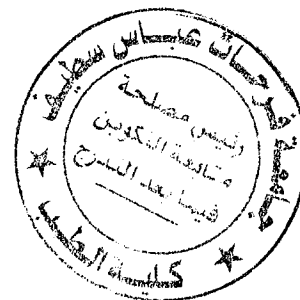 جامعة فرحات عباس سطيف
رئيس مصلحة
متابعة التكوين
فيما بعد التدرج
كلية الطب